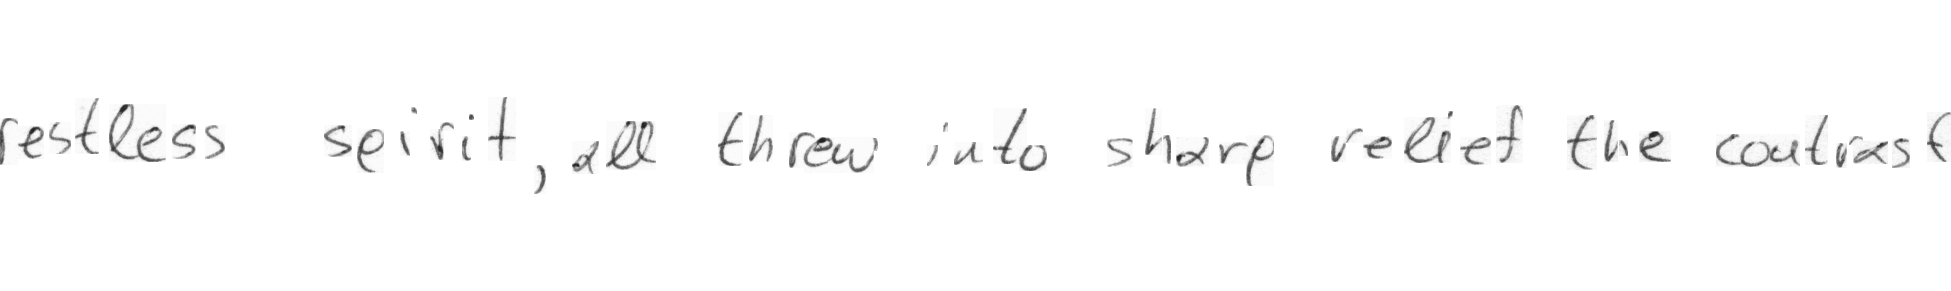 restless spirit, all threw into sharp relief the contrast